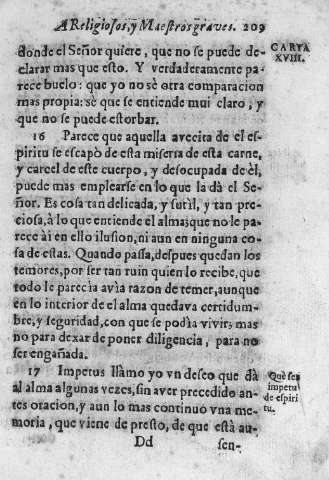 A Religiosos, y Maestros graves. 209
donde el Señor quiere, que no se puede de-
clarar mas que esto. Y verdaderamente pa-
rece buelo: que yo no sè otra comparacion
mas propia: sè que se entiende mui claro, y
que no se puede estorbar.
CARTA
XVIII.
16 Parece que aquella avecita de el es-
piritu se escapò de esta miseria de esta carne,
y carcel de este cuerpo, y desocupada de èl,
puede mas emplearse en lo que la dà el Se-
ñor. Es cosa tan delicada, y sutìl, y tan pre-
ciosa, à lo que entiende el alma; que no le pa-
rece ài en ello ilusion, ni aun en ninguna co-
sa de estas. Quando passa, despues quedan los
temores, por ser tan ruin quien lo recibe, que
todo le parecia avìa razon de temer, aunque
en lo interior de el alma quedava certidum-
bre, y seguridad, con que se podìa vivir; mas
no para dexar de poner diligencia, para no
ser engañada.
17 Impetus llàmo yo vn deseo que dà
al alma algunas vezes, sin aver precedido an-
tes oracion, y aun lo mas continuo vna me-
moria, que viene de presto, de que està au-
Què sea
impetu
de espiri
tu.
Dd
sen-